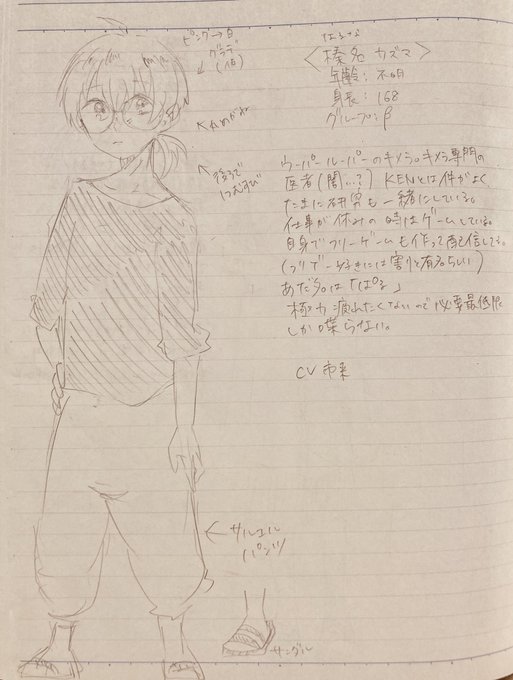 ピンク→白
グラデ
(仮)
はるな
<榛名 カズマ>
年齢: 不明
身長: 168
グループ: β
丸めがね
後ろで
1つむすび
ウーパールーパーのキメラ。キメラ専門の
医者(闇…?) KENとは仲がよく
たまに研究も一緒にしている。
仕事が休みの時はゲームしている。
自身でフリーゲームも作って配信してる。
(フリゲー好きには割と有名らしい)
あだ名は「ぱる」
極力疲れたくないので必要最低限
しか喋らない。
CV 市来
サルエル
パンツ
サンダル